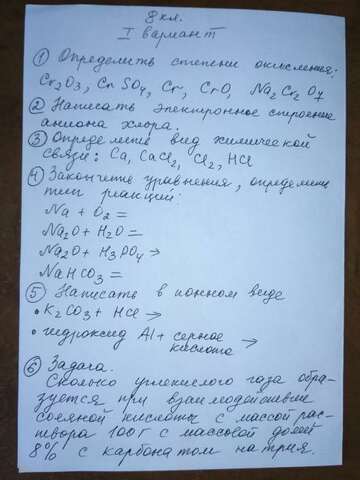 8 кл.
I вариант
① Определить степени окисления:
Cr2O3, CrSO4, Cr, CrO, Na2Cr2O7
② Написать электронное строение
аниона хлора.
③ Определить вид химической
связи: Ca, CaCl2, Cl2, HCl
④ Закончить уравнения, определить
тип реакций:
Na + O2 =
Na2O + H2O =
Na2O + H3PO4 →
NaHCO3 =
⑤ Написать в ионном виде
• K2CO3 + HCl →
• гидроксид Al + серная
кислота →
⑥ Задача.
Сколько углекислого газа обра-
зуется при взаимодействии
соляной кислоты с массой рас-
твора 100г с массовой долей
8% с карбонатом натрия.